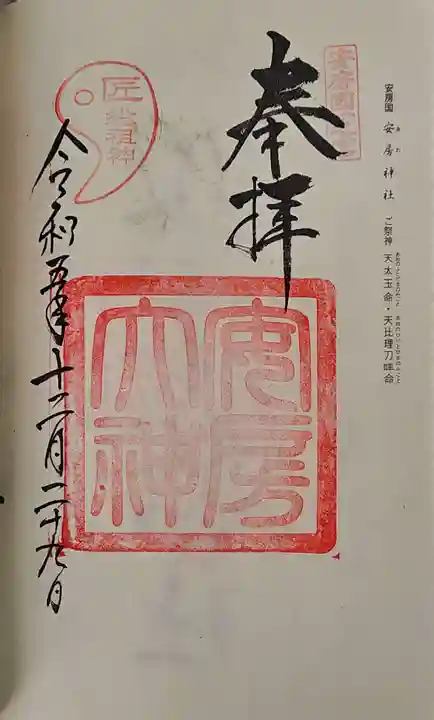 安房国 安房神社 ご祭神 天太玉命・天比理刀咩命
安房国一之宮
奉拝
安房
大神
匠総祖神
令和五年十二月二十九日